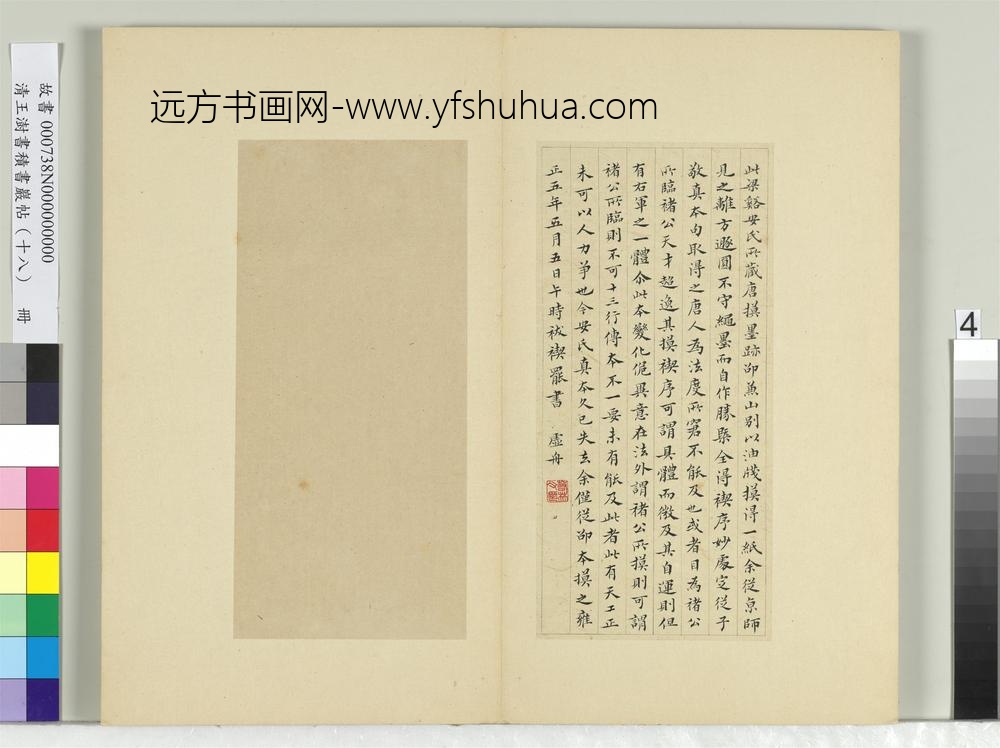 远方书画网-www.yfshuhua.com
故書 000738N000000000
清王澍書積書巖帖（十八） 冊
4
此梁谿安氏所藏唐摸墨跡卲兼山别以油牋摸得一紙余從京師
見之離方遯圓不守繩墨而自作勝槩全得禊序妙處定從子
敬真本向取得之唐人為法度所窘不能及也或者目為禇公
所臨禇公天才超逸其摸禊序可謂具體而微及其自運則但
有右軍之一體尒此本變化俶異意在法外謂禇公所摸則可謂
禇公所臨則不可十三行傳本不一要未有能及此者此有天工正
未可以人力爭也今安氏真本久已失去余僅從卲本摸之雍
正五年五月五日午時祓禊罷書 虛舟